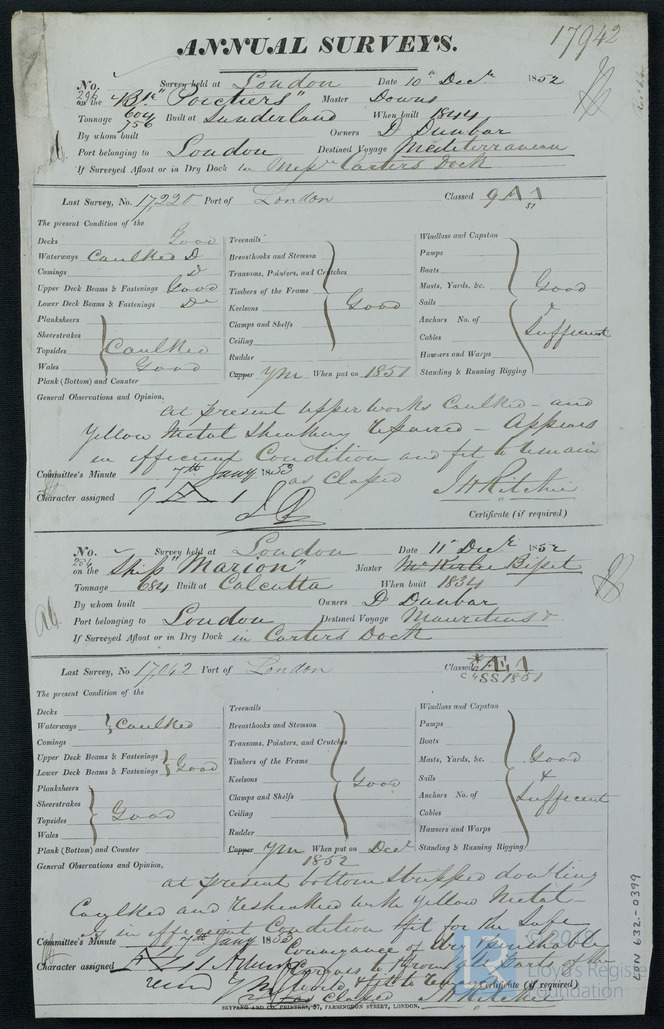 17942
ANNUAL SURVEYS.
No. 296 Survey held at London Date 10th Decr 1852
on the Bk "Poictiers" Master Downs
Tonnage 604 756 Built at Sunderland When built 1844
By whom built Owners D Dunbar
Port belonging to London Destined Voyage Mediterranean
If Surveyed Afloat or in Dry Dock in Messrs Carters Dock
Last Survey, No. 17,225 Port of London Classed 9 A 1
51
The present Condition of the
Decks Good
Waterways Caulked Do
Comings Do
Upper Deck Beams & Fastenings Good
Lower Deck Beams & Fastenings Do
Planksheers
Sheerstrakes
Topsides Caulked
Wales Good
Plank (Bottom) and Counter
Treenails
Breasthooks and Stemson
Transoms, Pointers, and Crutches
Timbers of the Frame
Keelsons Good
Clamps and Shelfs
Ceiling
Rudder
Copper YM When put on 1851
Windlass and Capstan
Pumps
Boats
Masts, Yards, &c. Good
Sails &
Anchors No. of Sufficient
Cables
Hawsers and Warps
Standing & Running Rigging
General Observations and Opinion,
at present upper works Caulked and
Yellow Metal Sheathing repaired - Appears
in efficient Condition and fit to remain
as Classed
Committee's Minute 7th Jany 1853
Character assigned 9 A 1
J H Ritchie
Certificate (if required)
No. Survey held at London Date 11th Decr 1852
on the Ship "Marion" Master Bisset
Tonnage 684 Built at Calcutta When built 1834
By whom built Owners D Dunbar
Port belonging to London Destined Voyage Mauritius &
If Surveyed Afloat or in Dry Dock in Carters Dock
Last Survey, No 17042 Port of London Classed *Æ 1
SS 1851
The present Condition of the
Decks
Waterways Caulked
Comings
Upper Deck Beams & Fastenings
Lower Deck Beams & Fastenings Good
Planksheers
Sheerstrakes
Topsides Good
Wales
Plank (Bottom) and Counter
Treenails
Breasthooks and Stemson
Transoms, Pointers, and Crutches
Timbers of the Frame
Keelsons Good
Clamps and Shelfs
Ceiling
Rudder
Copper YM When put on Decr
1852
Windlass and Capstan
Pumps
Boats
Masts, Yards, &c. Good
Sails &
Anchors No. of Sufficient
Cables
Hawsers and Warps
Standing & Running Rigging
General Observations and Opinion,
at present bottom stripped doubling
Caulked and resheathed with Yellow Metal
is in efficient Condition & fit for the Safe
Conveyance of Dry & Perishable
Cargoes to & from all Parts of the
World, & fit to remain
as Classed
Committee's Minute 7th Jany 1853
Character assigned Æ 1
J H Ritchie
Certificate (if required)
SKYFANG AND CO. PRINTERS, 57, FARRINGDON STREET, LONDON.
LON 632-0399
© 2019
LR
Lloyd's Register
Foundation